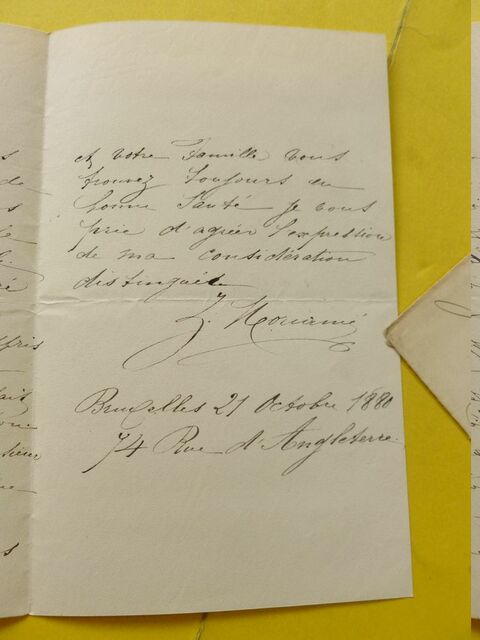 et votre Famille vous
trouvez toujours en
bonne Santé je vous
prie d'agréer l'expression
de ma considération
distinguée
Bruxelles 21 Octobre 1880
74 Rue d'Angleterre.
pris